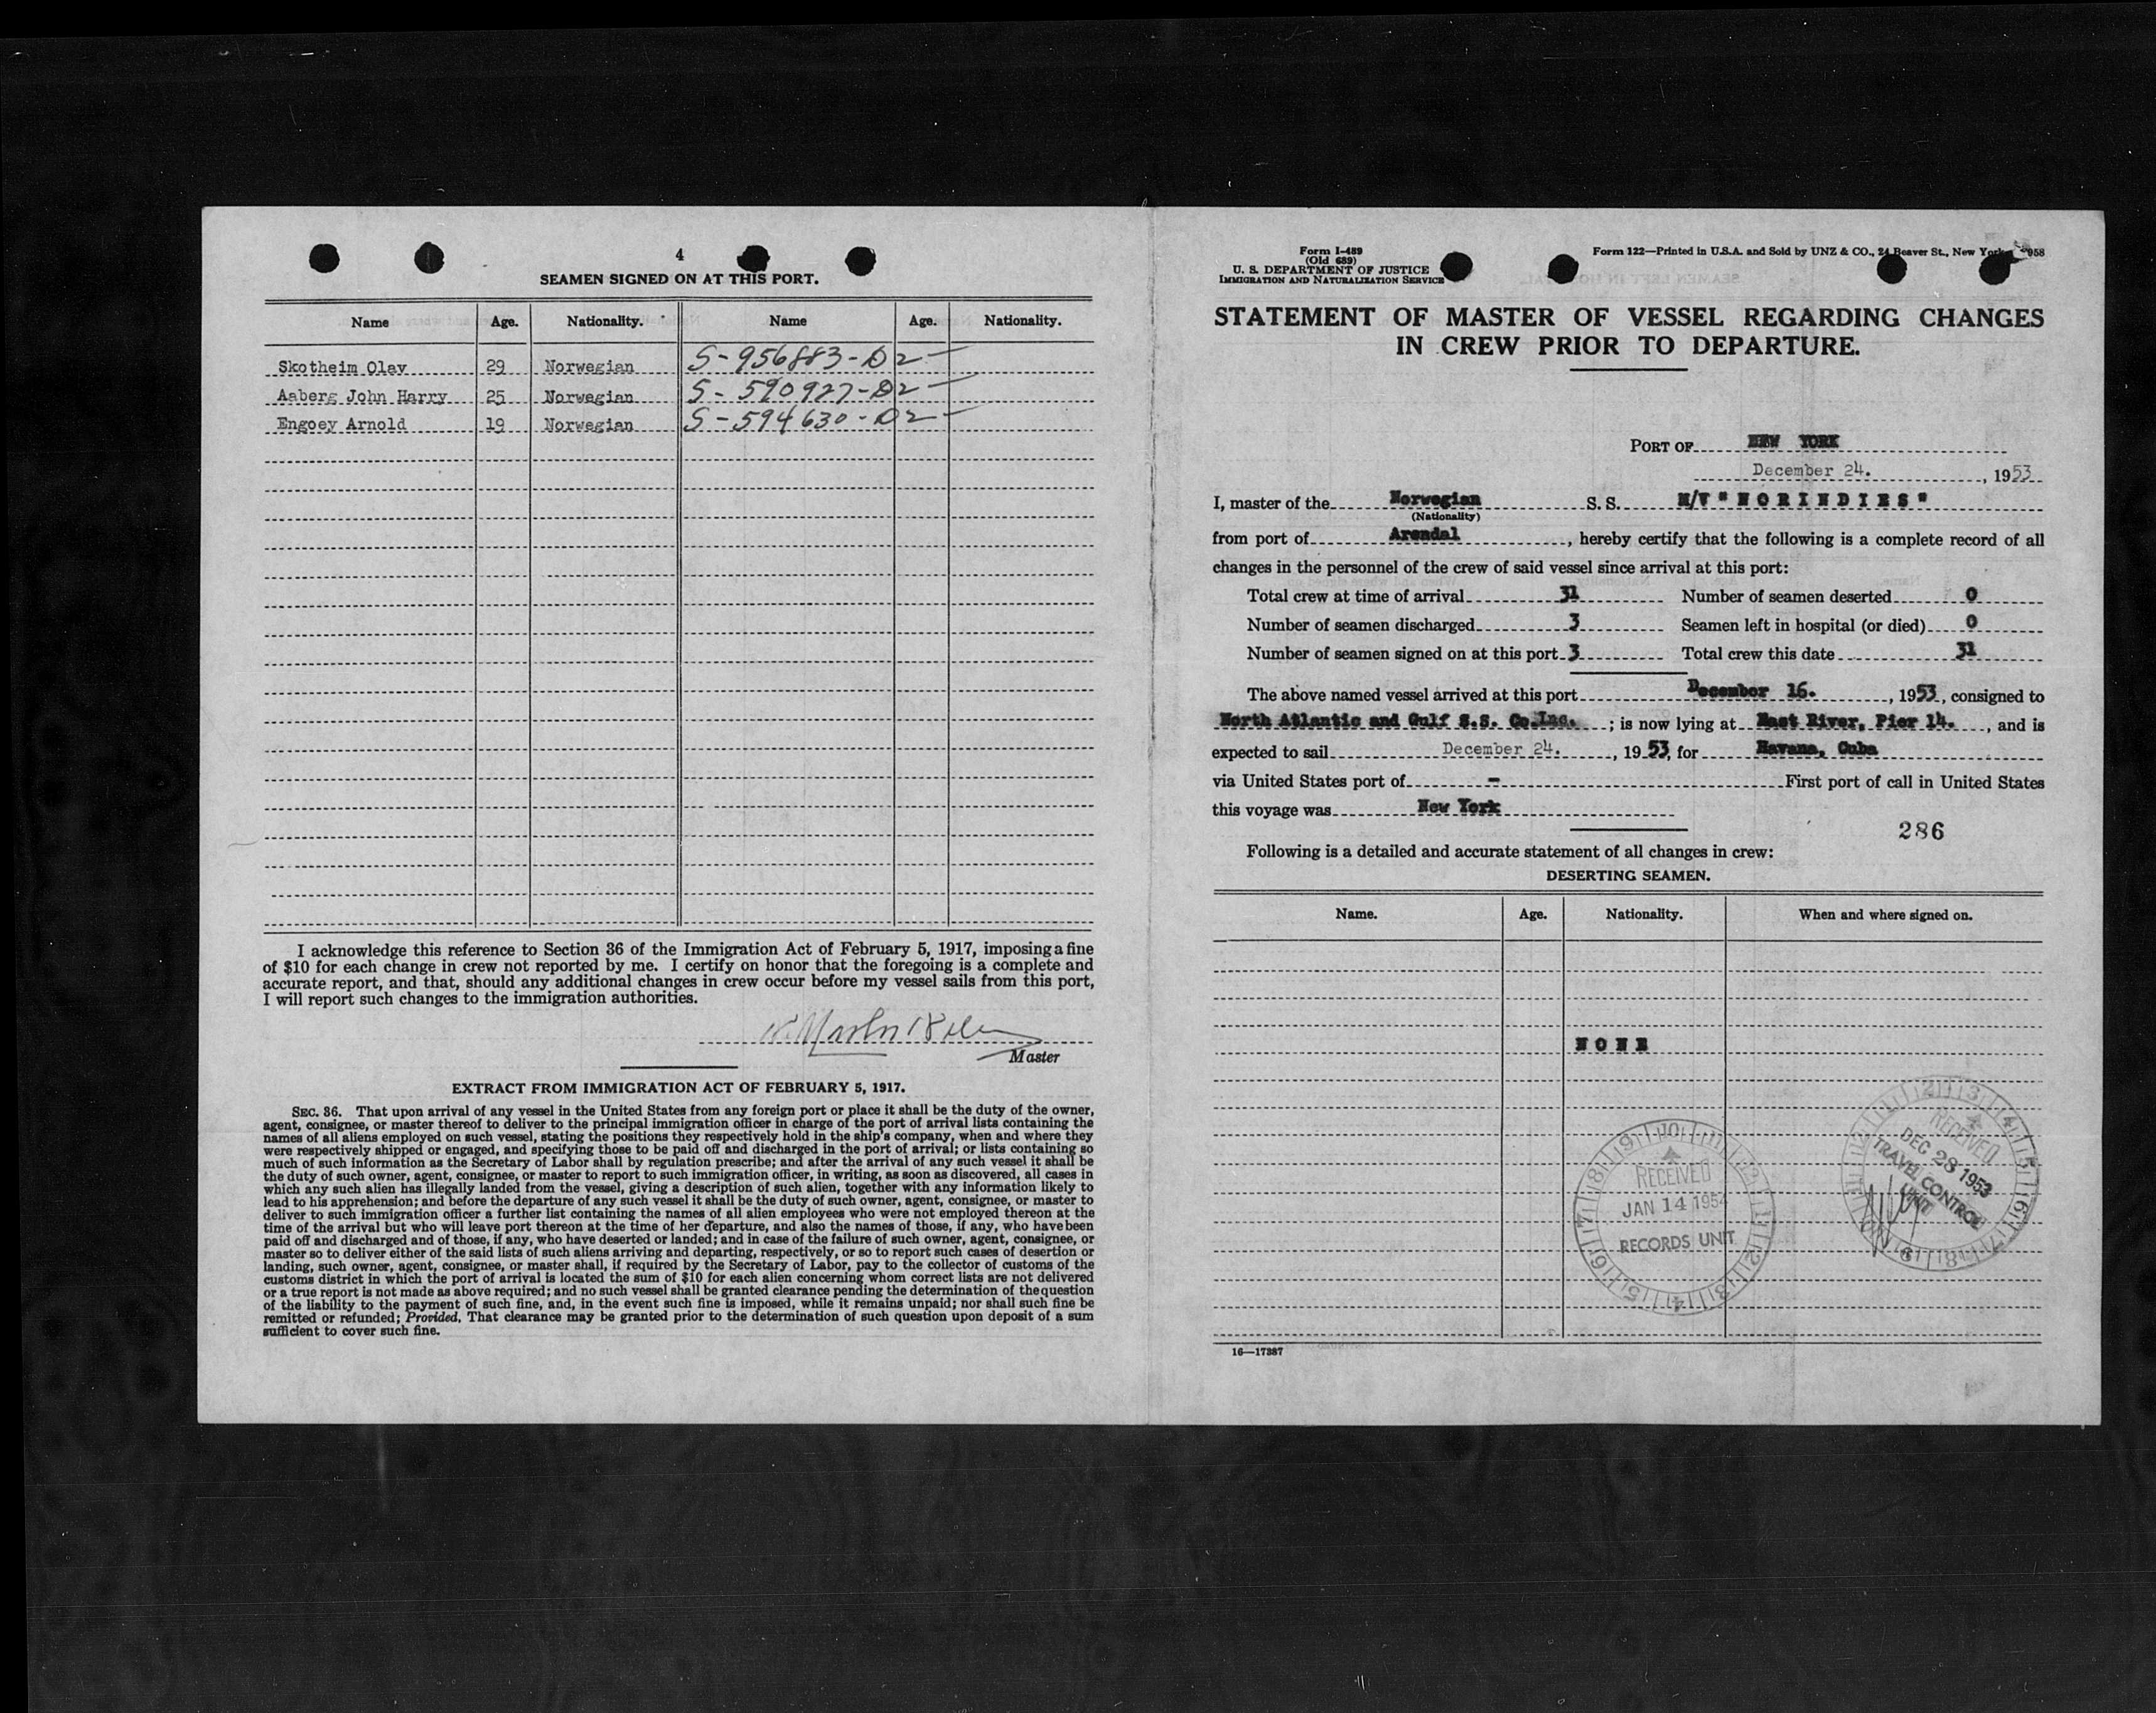 4
SEAMEN SIGNED ON AT THIS PORT.
Name Age. Nationality. Name Age. Nationality.
Skotheim Olav 29 Norwegian S-956883-D2-
Aaberg John Harry 25 Norwegian S-590927-D2-
Engoey Arnold 19 Norwegian S-594630-D2-
I acknowledge this reference to Section 36 of the Immigration Act of February 5, 1917, imposing a fine
of $10 for each change in crew not reported by me. I certify on honor that the foregoing is a complete and
accurate report, and that, should any additional changes in crew occur before my vessel sails from this port,
I will report such changes to the immigration authorities.
Master
EXTRACT FROM IMMIGRATION ACT OF FEBRUARY 5, 1917.
SEC. 36. That upon arrival of any vessel in the United States from any foreign port or place it shall be the duty of the owner,
agent, consignee, or master thereof to deliver to the principal immigration officer in charge of the port of arrival lists containing the
names of all aliens employed on such vessel, stating the positions they respectively hold in the ship's company, when and where they
were respectively shipped or engaged, and specifying those to be paid off and discharged in the port of arrival; or lists containing so
much of such information as the Secretary of Labor shall by regulation prescribe; and after the arrival of any such vessel it shall be
the duty of such owner, agent, consignee, or master to report to such immigration officer, in writing, as soon as discovered, all cases in
which any such alien has illegally landed from the vessel, giving a description of such alien, together with any information likely to
lead to his apprehension; and before the departure of any such vessel it shall be the duty of such owner, agent, consignee, or master to
deliver to such immigration officer a further list containing the names of all alien employees who were not employed thereon at the
time of the arrival but who will leave port thereon at the time of her departure, and also the names of those, if any, who have been
paid off and discharged and of those, if any, who have deserted or landed; and in case of the failure of such owner, agent, consignee, or
master so to deliver either of the said lists of such aliens arriving and departing, respectively, or so to report such cases of desertion or
landing, such owner, agent, consignee, or master shall, if required by the Secretary of Labor, pay to the collector of customs of the
customs district in which the port of arrival is located the sum of $10 for each alien concerning whom correct lists are not delivered
or a true report is not made as above required; and no such vessel shall be granted clearance pending the determination of the question
of the liability to the payment of such fine, and, in the event such fine is imposed, while it remains unpaid; nor shall such fine be
remitted or refunded; Provided, That clearance may be granted prior to the determination of such question upon deposit of a sum
sufficient to cover such fine.
Form I-489
(Old 689)
U. S. DEPARTMENT OF JUSTICE
IMMIGRATION AND NATURALIZATION SERVICE
Form 122—Printed in U.S.A. and Sold by UNZ & CO., 24 Beaver St., New York 958
STATEMENT OF MASTER OF VESSEL REGARDING CHANGES
IN CREW PRIOR TO DEPARTURE.
PORT OF NEW YORK
December 24. , 1953
I, master of the Norwegian S. S. M/T "NORINDIES"
(Nationality)
from port of Arendal , hereby certify that the following is a complete record of all
changes in the personnel of the crew of said vessel since arrival at this port:
Total crew at time of arrival 31 Number of seamen deserted 0
Number of seamen discharged 3 Seamen left in hospital (or died) 0
Number of seamen signed on at this port 3 Total crew this date 31
The above named vessel arrived at this port December 16. , 1953, consigned to
North Atlantic and Gulf S.S. Co.Inc. ; is now lying at East River, Pier 14. , and is
expected to sail December 24. , 1953, for Havana, Cuba
via United States port of - First port of call in United States
this voyage was New York
286
Following is a detailed and accurate statement of all changes in crew:
DESERTING SEAMEN.
Name. Age. Nationality. When and where signed on.
NONE
RECEIVED
DEC 28 1953
TRAVEL CONTROL
UNIT
RECEIVED
JAN 14 1954
RECORDS UNIT
16—17387